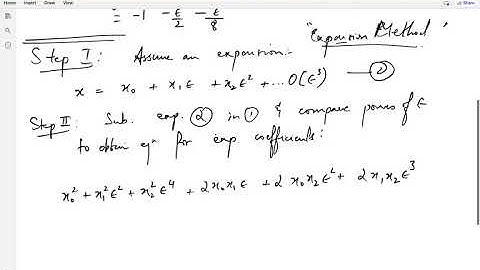 = -1 - ε/2 - ε/8
"Expansion Method"
Step I: Assume an expansion:-
x = x₀ + x₁ε + x₂ε² + ... O(ε³) — ②
Step II: Sub. exp. ② in ① & compare powers of ε
to obtain eqⁿ for exp coefficients:
x₀² + x₁²ε² + x₂²ε⁴ + 2x₀x₁ε + 2x₀x₂ε² + 2x₁x₂ε³